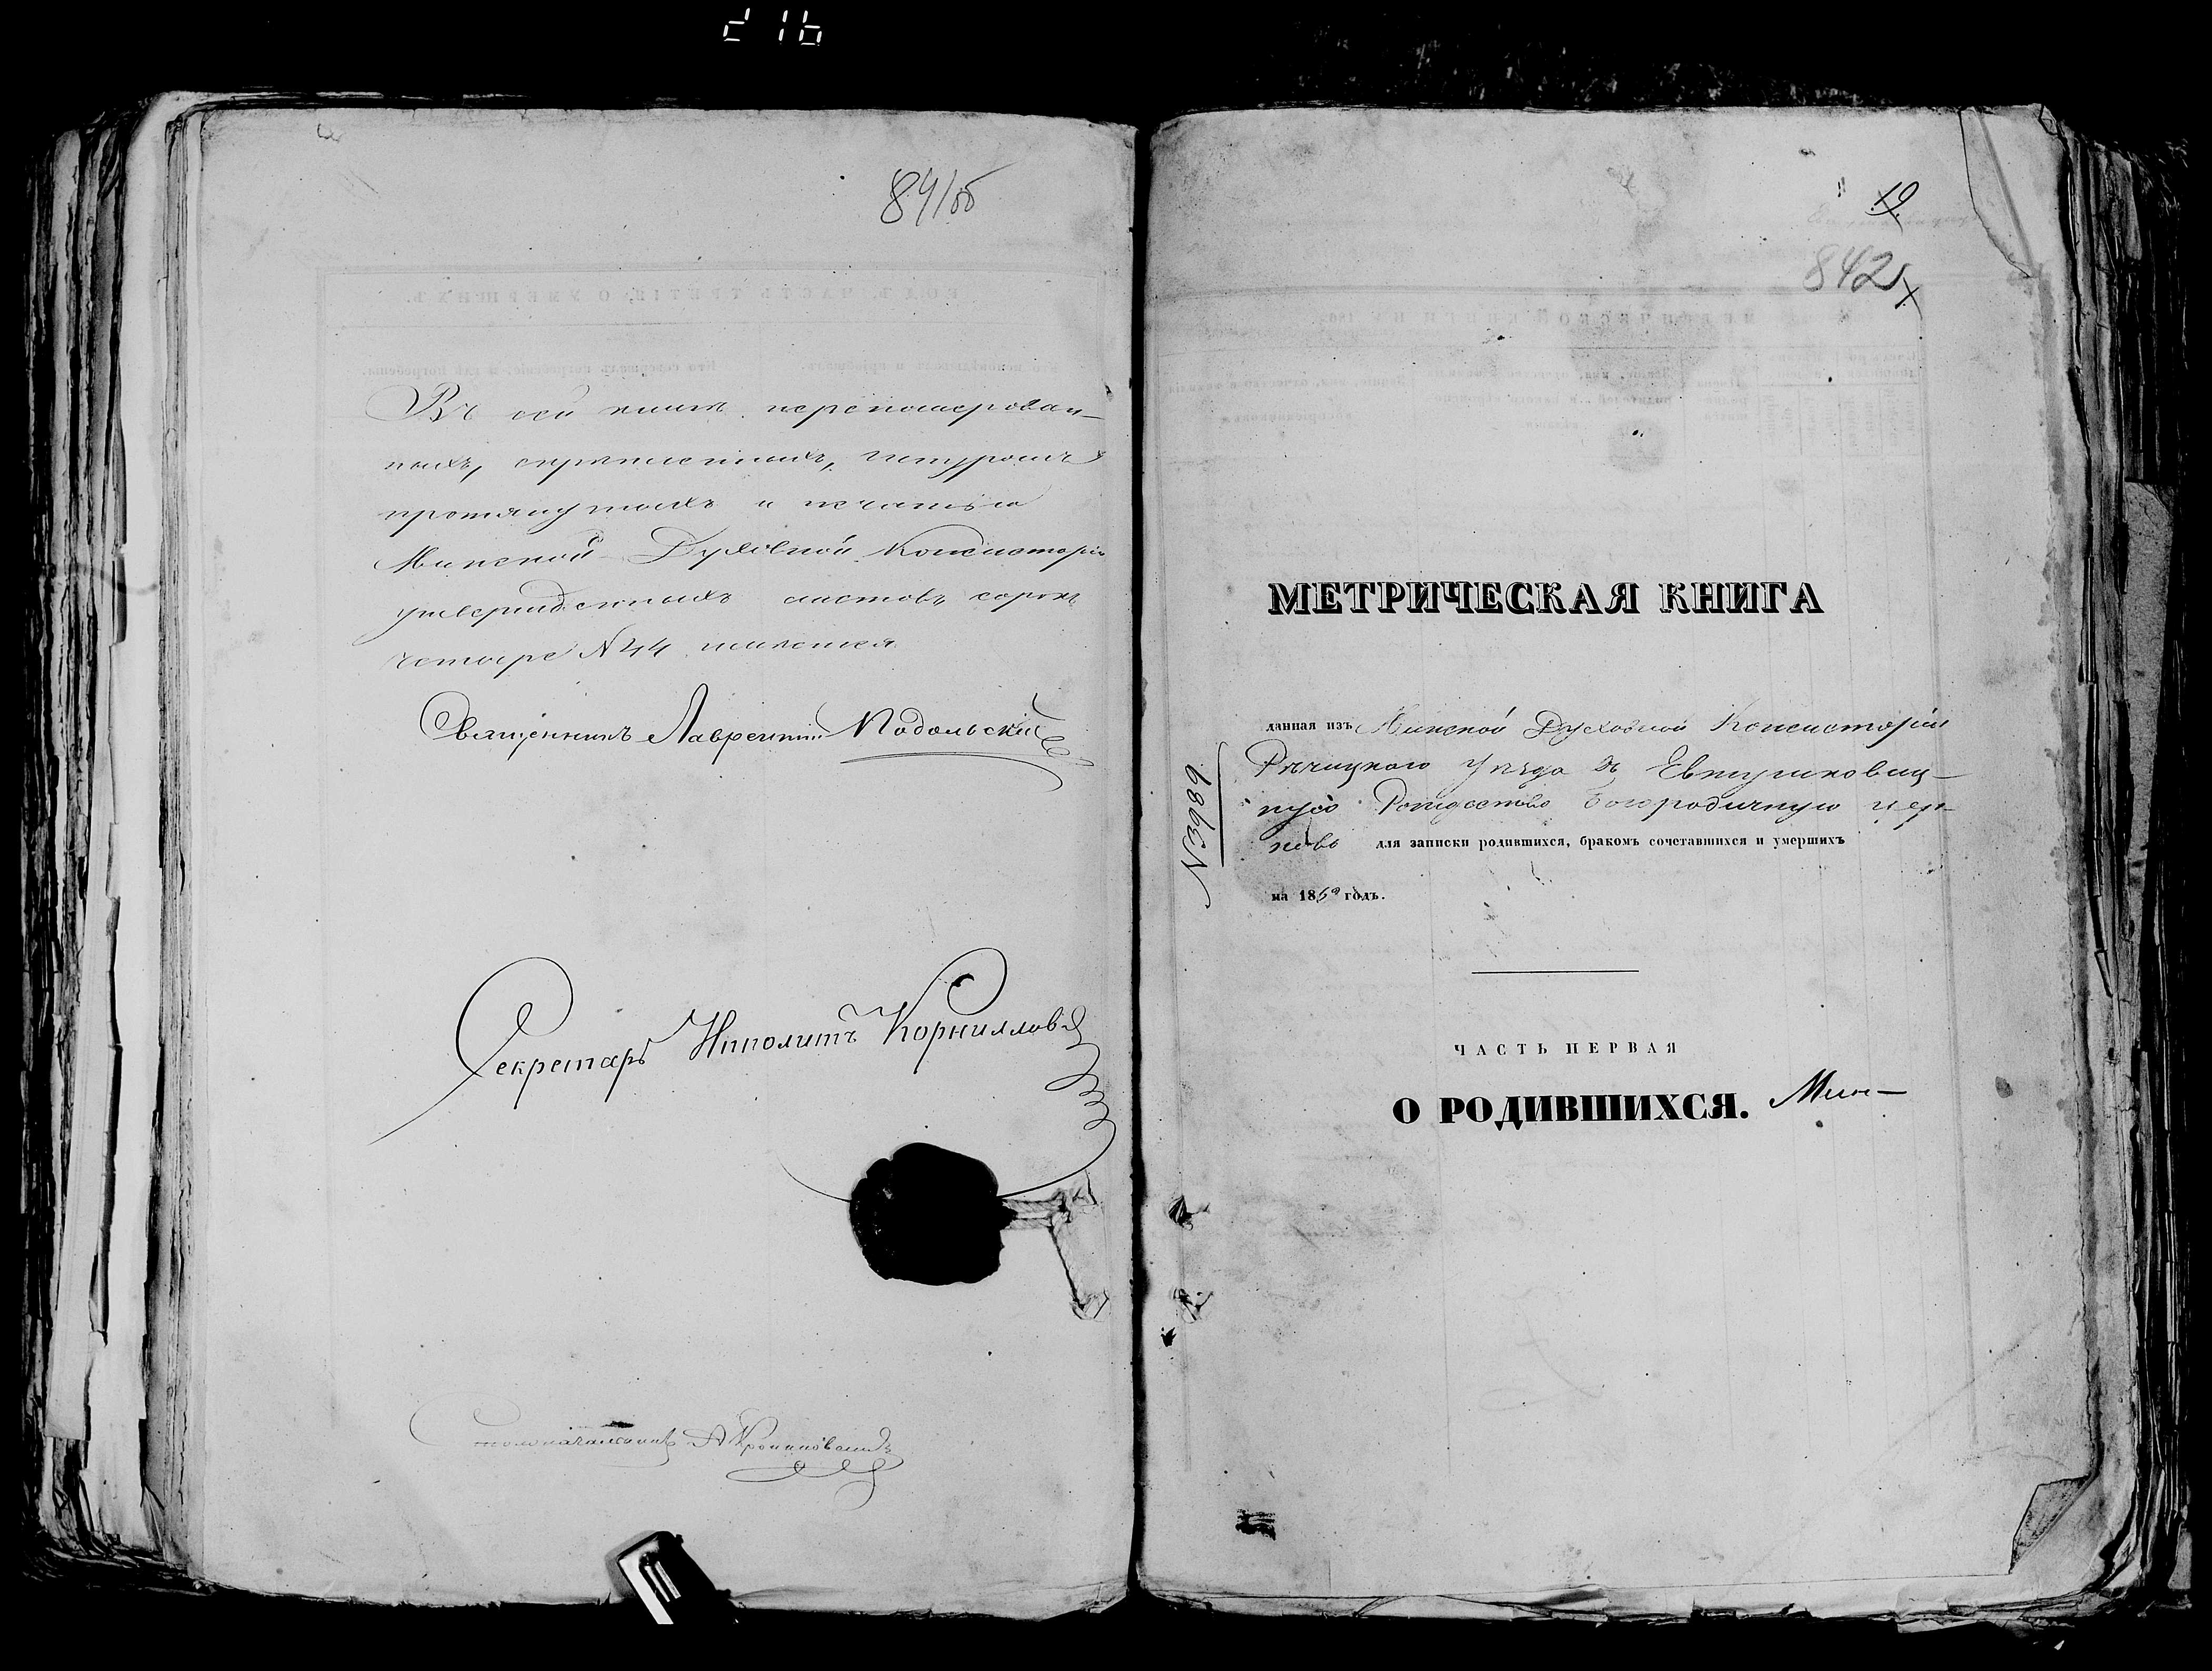 216
841об
Въ сей книге перенумерован-
ныхъ, скрепленныхъ, шнуромъ
протянутыхъ и печатью
Минской Духовной Консисторіи
утвержденныхъ листовъ сорокъ
четыре №44 имеется
Священникъ Лаврентій Подольскій
Секретарь Ипполитъ Корниллов
Столоначальникъ А
19
842
МЕТРИЧЕСКАЯ КНИГА
данная изъ Минской Духовной Консисторіи
Речицкого Уезда въ Евтушковиц-
кую Рождество Богородичную цер-
ковь для записки родившихся, бракомъ сочетавшихся и умершихъ
на 18 годъ.
№3989
ЧАСТЬ ПЕРВАЯ
О РОДИВШИХСЯ. Мин-